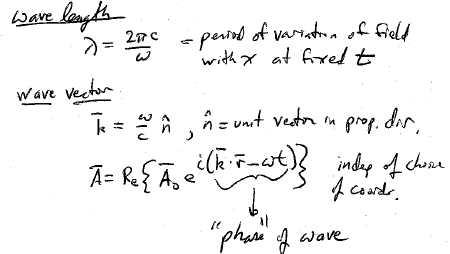 wave length
λ = 2πc/ω = period of variation of field
with x at fixed t
wave vector
k̄ = ω/c n̂ , n̂ = unit vector in prop. dir.
Ā = Re{Ā₀ e^{i(k̄·r̄-ωt)}} indep of choice
of coords.
"phase" of wave